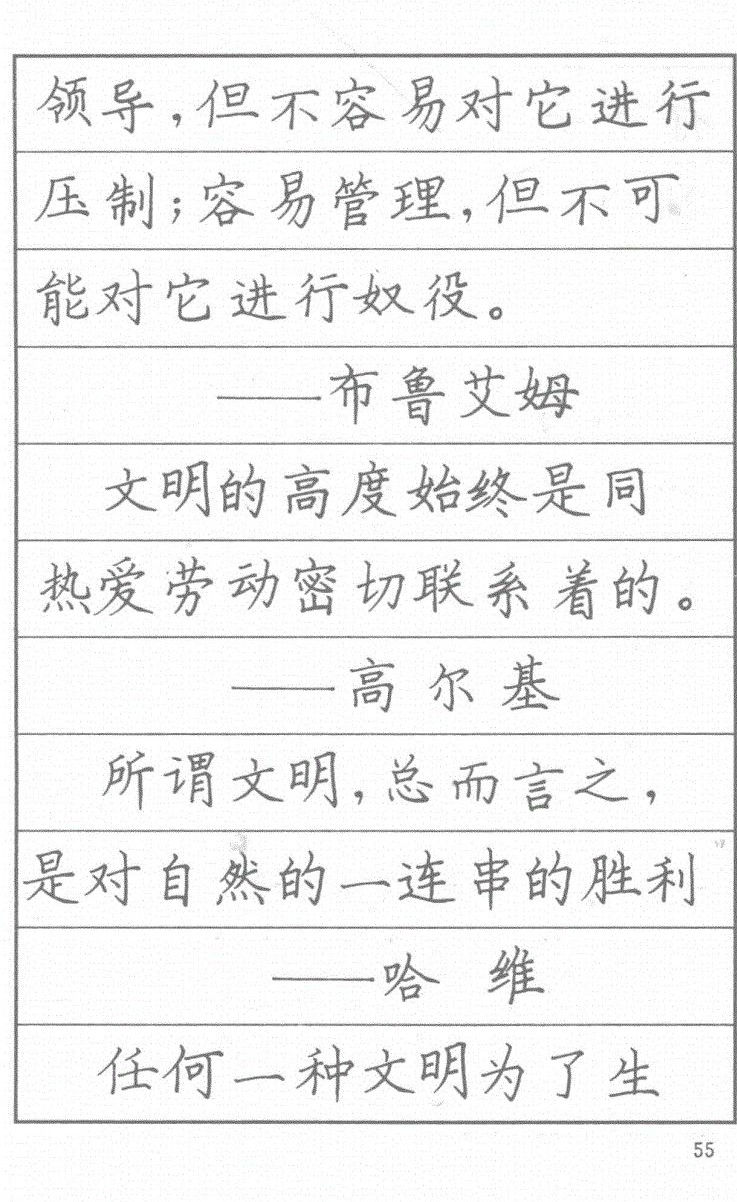 领导，但不容易对它进行
压制；容易管理，但不可
能对它进行奴役。
——布鲁艾姆
文明的高度始终是同
热爱劳动密切联系着的。
——高尔基
所谓文明，总而言之，
是对自然的一连串的胜利
——哈 维
任何一种文明为了生
55